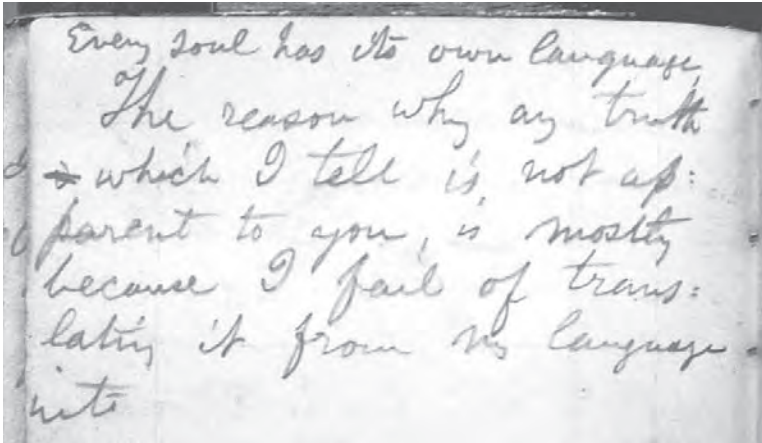 Every soul has its own language,
The reason why any truth
which I tell is, not ap:
parent to you, is mostly
because I fail of trans:
lating it from my language
into